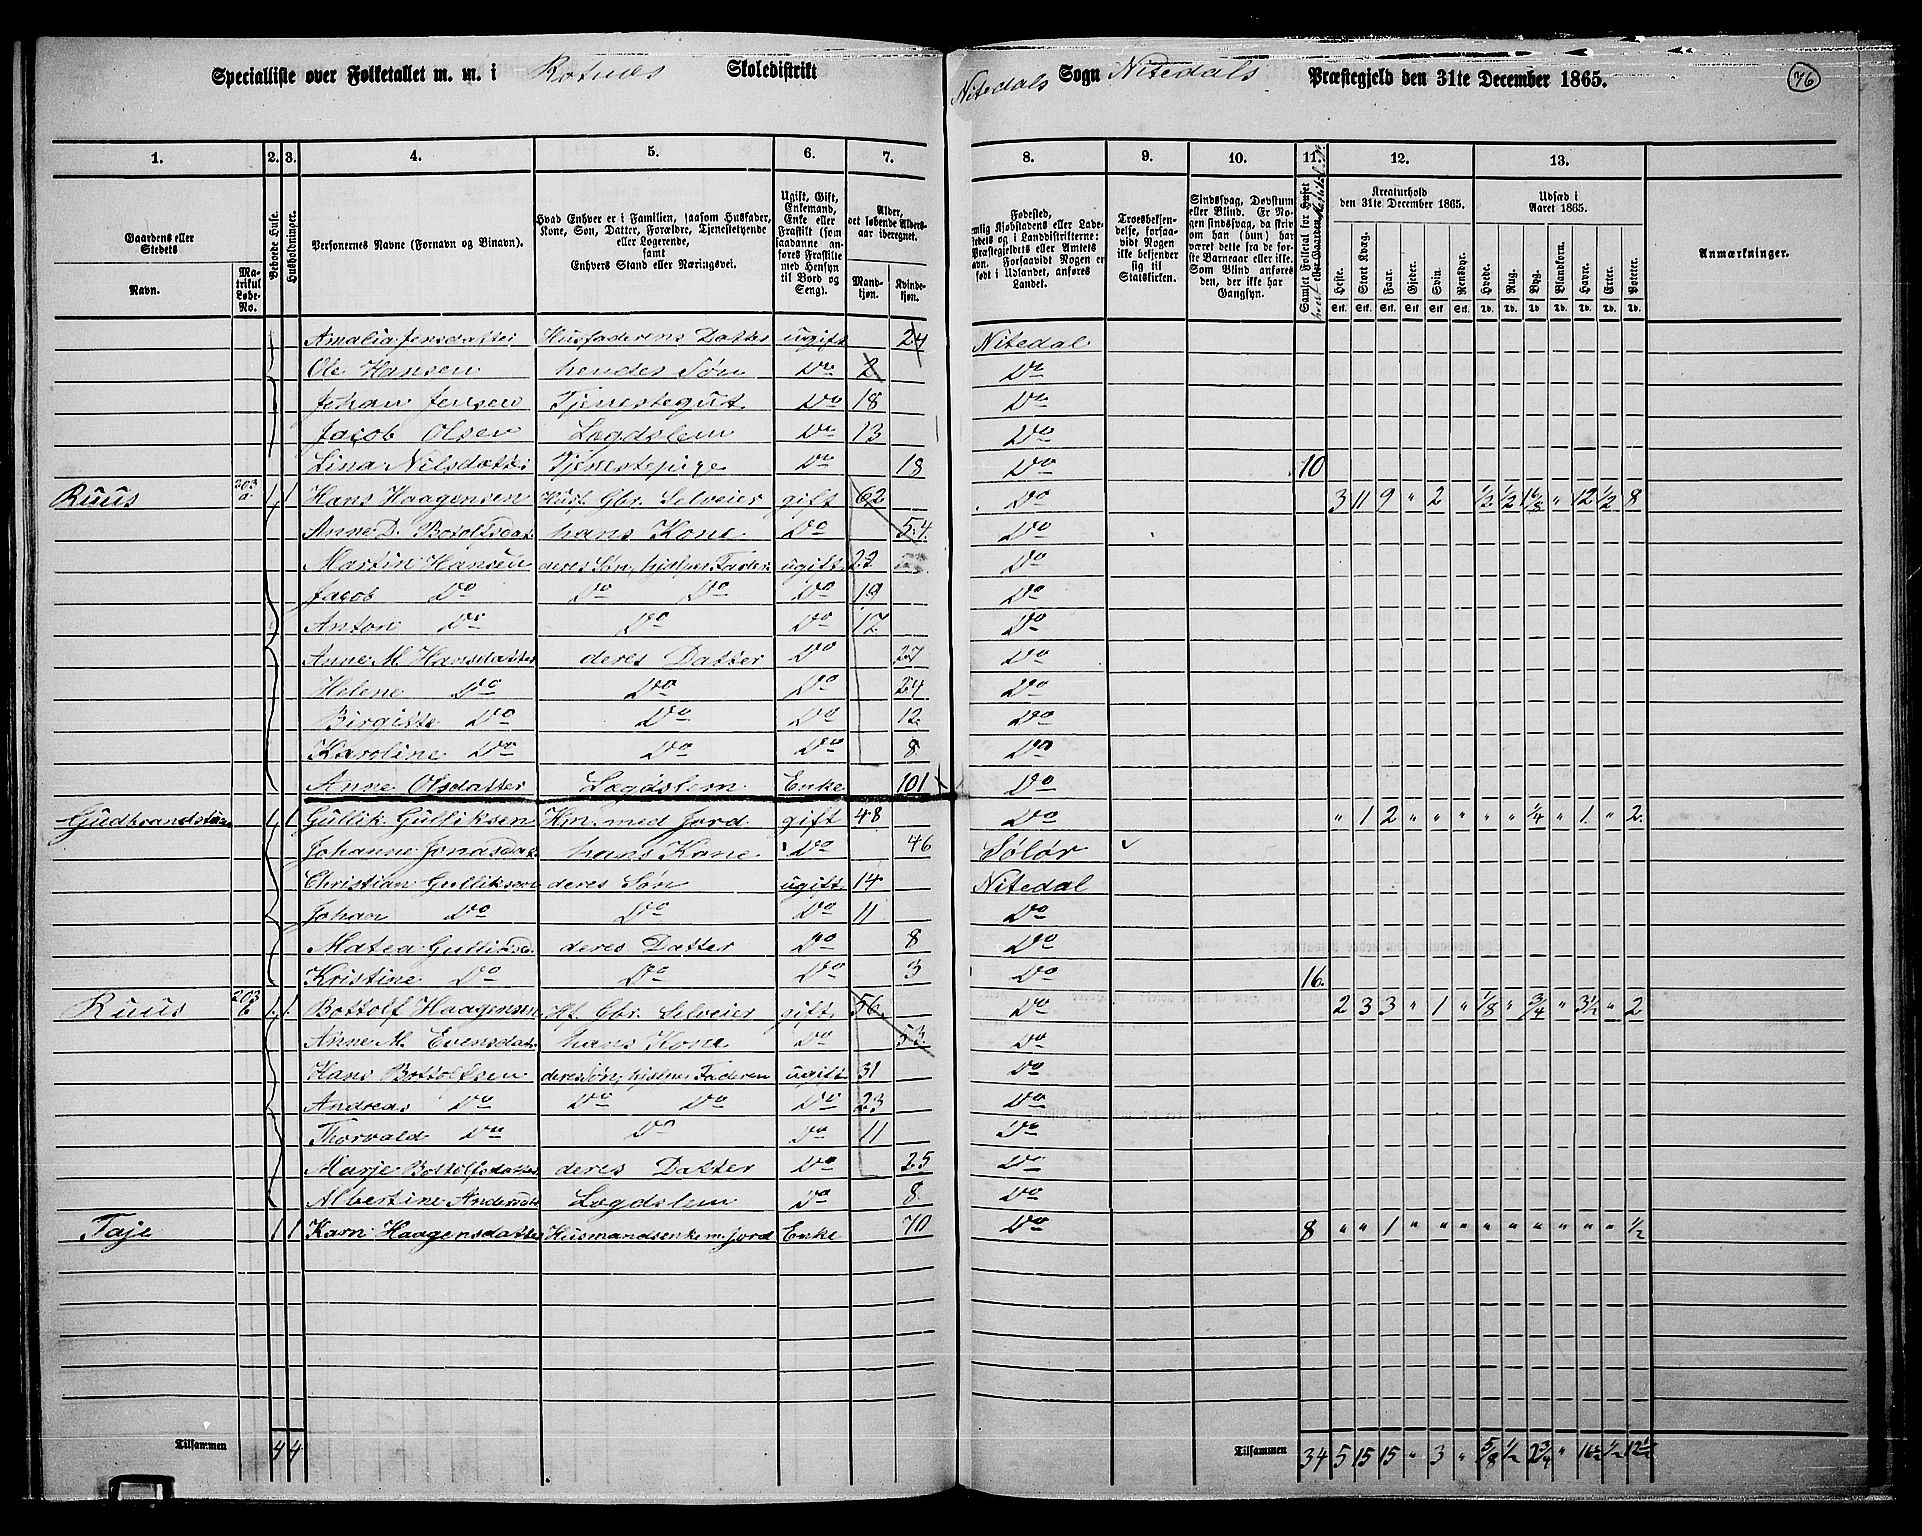 Specialliste over Folketallet m. m. i Rotnes Skoledistrikt Nitedals Sogn Nitedals Præstegjeld den 31te December 1865. 76
1. 2. 3. 4. 5. 6. 7. 8. 9. 10. 11. 12. 13.
Gaardens eller Stedets Navn. Matrikul Løbe-No. Beboede Huse. Husholdninger. Personernes Navne (Fornavn og Binavn). Hvad Enhver er i Familien, saasom Husfader, Kone, Søn, Datter, Forældre, Tjenestetyende eller Logerende, samt Enhvers Stand eller Næringsvei. Ugift, Gift, Enkemand, Enke eller Fraskilt (som saadanne anføres Fraskilte med Hensyn til Bord og Seng). Alder, det løbende Alders-aar iberegnet. Mandkjøn. Kvindekjøn. Trosbekjendelse, forsaavidt Nogen ikke bekjender sig til Statskirken. Kreaturhold den 31te December 1865. Udsæd i Aaret 1865. Anmærkninger.
Heste. Stort Kvæg. Faar. Gjeder. Svin. Rensdyr. Hvede. Rug. Byg. Blandkorn. Havre. Erter. Poteter.
Amalia Jensdatter Husfaderens Datter ugift 24 Nitedal
Ole Hansen hendes Søn Do 2 Do
Johan Jensen Tjenestegut Do 18 Do
Jacob Olsen Lægdslem Do 13 Do
Lina Nilsdatter Tjenestepige Do 18 Do 10
Ruus 203 a. 1 1 Hans Haagensen Husf. Gbr. Selveier gift 62 Do 3 11 9 " 2 " 1/2 1/2 1 6/8 " 12 1/2 8
Anne D. Botolfsdat. hans Kone Do 54 Do
Martin Hansen deres Søn, hjelper Fader. ugift 22 Do
Jacob Do Do Do Do 19 Do
Anton Do Do Do 17 Do
Anne M. Hansdatter deres Datter Do 27 Do
Helene Do Do Do 24 Do
Birgitte Do Do Do 12 Do
Karoline Do Do Do 8 Do
Anne Olsdatter Lægdslem Enke 101 Do
1 1 Gullik Gulliksen Hm. med Jord gift 48 Do " 1 2 " " " " " 1/4 " 1 " 2
Johanne Jonasdat. hans Kone Do 46 Solør
Christian Gulliksen deres Søn ugift 14 Nitedal
Johan Do Do Do 11 Do
Matea Gulliksd. deres Datter Do 8 Do
Kristine Do Do Do 3 Do 16
Ruus 203 b 1 1 Bottolf Haagensen Hf. Gbr. Selveier gift 56 Do 2 3 3 " 1 " 1/8 " 3/4 " 3 1/2 " 2
Anne M. Evensdatr hans Kone Do 53 Do
Hans Bottolfsen deres Søn, hjelper Faderen ugift 31 Do
Andreas Do Do Do Do 23 Do
Thorvald Do Do Do 11 Do
Marje Bottolfsdatter deres Datter Do 25 Do
Albertine Andersdtr Lægdslem Do 8 Do
Taje 1 1 Karn Haagensdatter Husmandsenke m. Jord Enke 70 Do 8 " " 1 " " " " " " " " " 1/2
Tilsammen 4 4 Tilsammen 34 5 15 15 " 3 " 5/8 1/2 2 3/4 " 16 1/2 1/2 12 1/2